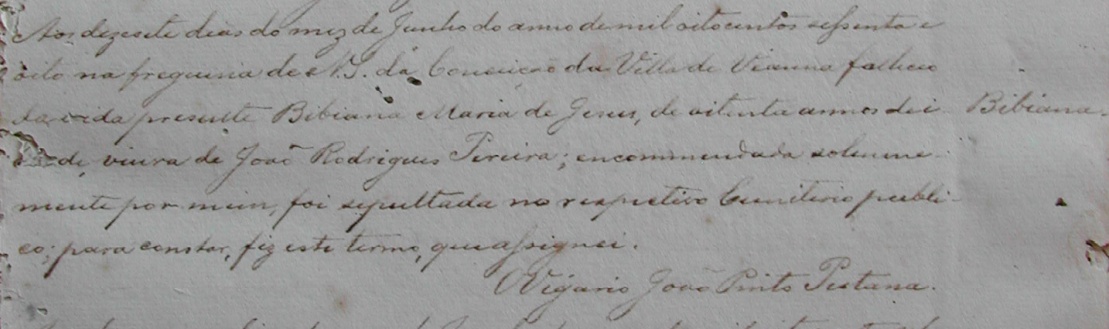 Aos dezesete dias do mez de Junho do anno de mil oitocentos sessenta e
oito na freguesia de N. S. da Conceicão da Villa de Vianna falleceo
da vida presente Bibiana Maria de Jesus, de oitenta annos de i- Bibiana.
dade, viuva de João Rodrigues Pereira; encommendada solemne-
mente por mim, foi sepultada no respectivo Cemiterio publi-
co; para constar, fiz este termo, que assignei.
O Vigario João Pinto Pestana.